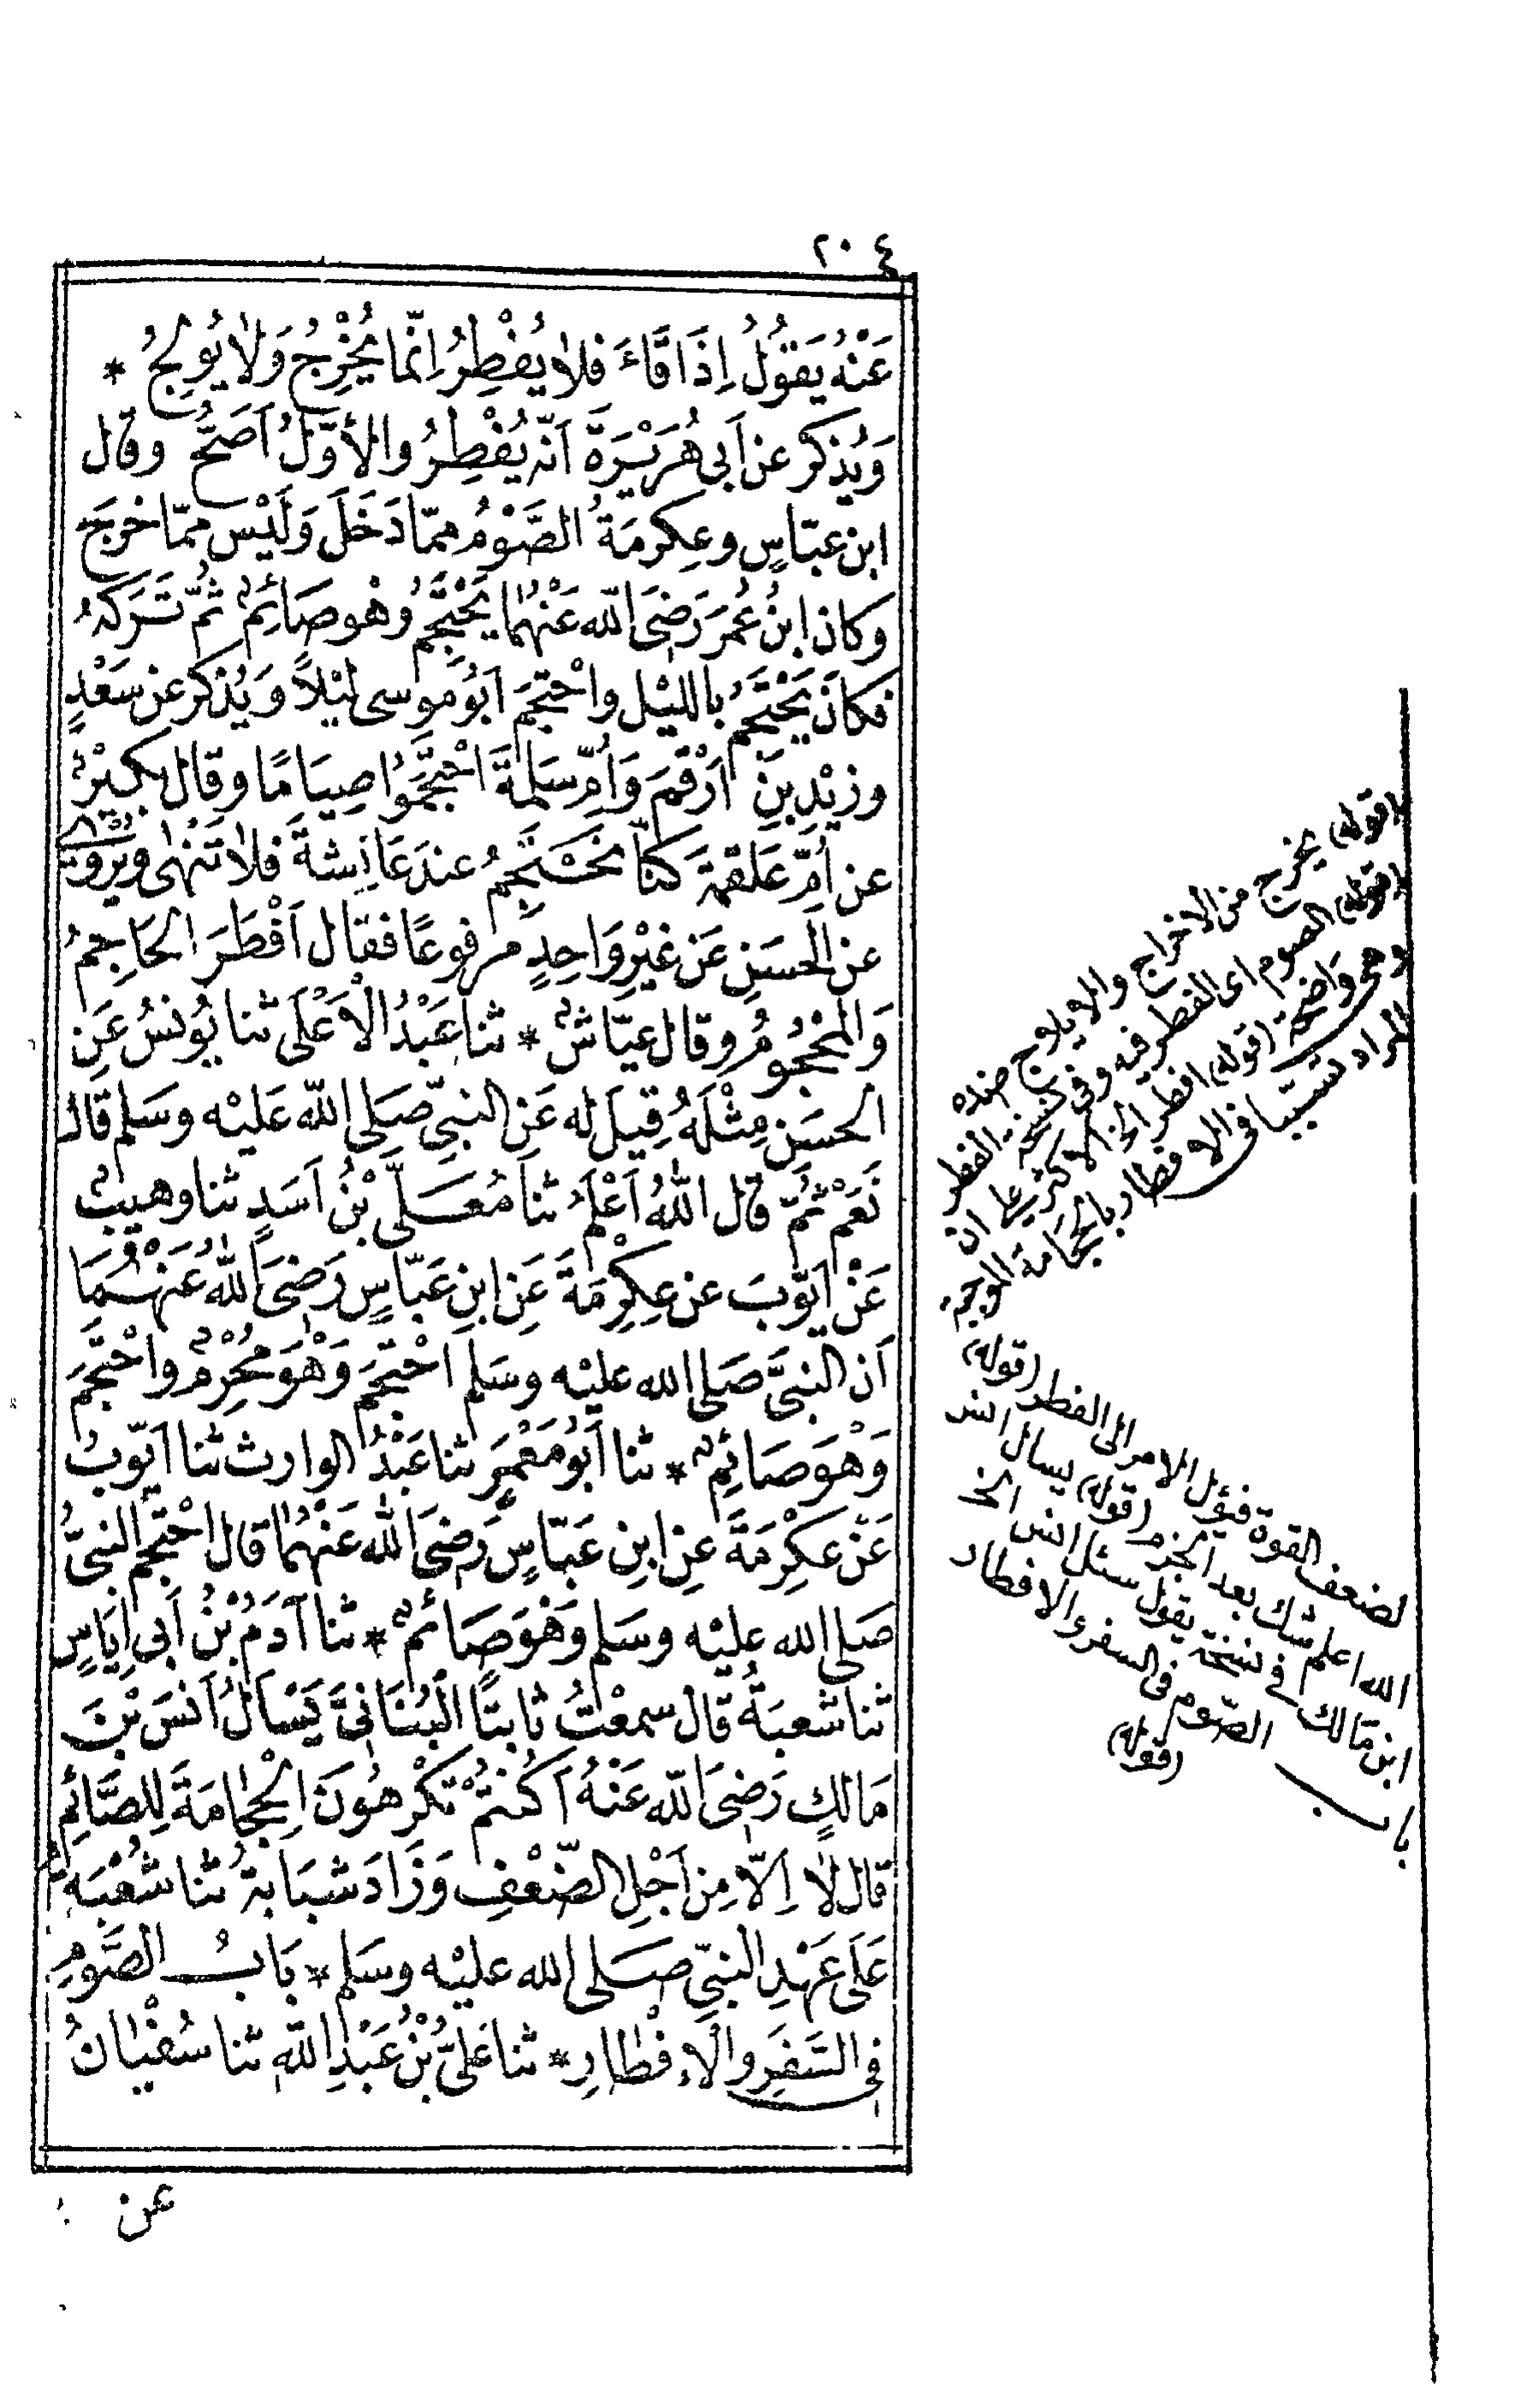 ٢٠٤
عَنْهُ يَقُولُ اِذَا قَاءَ فلا يُفْطِرُ اِنَّما يُخْرِجُ وَلا يُولِجُ *
وَيُذكر عن اَبى هُرَيْرَةَ اَنّه يُفْطِرُ والأوَّلُ اَصَحُّ وقال
ابن عبّاسٍ وعِكرمَةُ الصَّوْمُ ممّا دَخَلَ وَلَيْسَ ممّا خَرجَ
وَكان ابنُ عُمَرَ رَضِىَ اللّه عَنْهُما يَحْتَجِمُ وهْو صَائِمٌ ثُمّ تَرَكَهُ
فكانَ يَحْتَجِمُ بالليْل واحْتجَمَ اَبُو مُوسى لَيْلاً وَيُذكر عن سَعْدٍ
وزيْدِ بنِ اَرْقمَ وَاُمِّ سَلمةَ احْتجَمُوا صِيَامًا وقال بكيْرٌ
عن اُمِّ عَلقمَةَ كنّا نَحْتَجِمُ عندَ عَائِشةَ فلا تَنْهى ويُرْوى
عن الحَسَنِ عَن غيْرِ وَاحِدٍ مرفوعًا فقال اَفْطَرَ الحَاجِمُ
وَالمَحْجُومُ وقال عيّاشٌ * ثنا عَبْدُ الْاَعْلَى ثنا يُونسُ عَنِ
الحسَنِ مِثْلَهُ قِيلَ له عَنِ النبىِّ صَلى اللّه عَليْه وسَلم قال
نَعَمْ ثُمّ قال اللّهُ اَعْلَمُ ثنا مُعَلَّى بْنُ اَسَدٍ ثنا وهيبٌ
عَنْ ايّوبَ عن عِكْرِمَةَ عَنِ ابنِ عَبّاسٍ رَضِىَ اللّهُ عَنْهُمَا
اَن النبىَّ صَلى الله عليْه وسَلم احْتجَمَ وَهْوَ مُحْرِمٌ واحْتَجَمَ
وَهْوَ صَائِمٌ * ثنا اَبُو مَعْمَرٍ ثنا عَبْدُ الوارث ثنا ايّوبُ
عَنْ عكِرْمَةَ عنِ ابنِ عَبّاسٍ رَضِىَ اللّه عَنْهُما قال احْتجَم النبىُّ
صَلى الله عليْه وسَلم وَهْوَ صَائمٌ * ثنا آدَمُ بْنُ اَبى اِيَاسٍ
ثنا شعبَةُ قال سمعْتُ ثابتًا البُنَانىَّ يَسْاَلُ اَنسَ بْنَ
مَالكٍ رَضِىَ اللّه عَنْهُ اَكُنتُمْ تكْرهُونَ الحِجَامَةَ لِلصَّائِمِ
قال لا اِلّا مِن اَجْلِ الضّعْفِ وَزَادَ شبَابَةُ ثنا شُعْبَةُ
عَلَى عَهْدِ النبىِّ صَلى الله عليْه وسَلم * بَابُ الصَّوْمِ
فى السَّفَرِ والْاِفْطارِ * ثنا عَلىُّ بْنُ عَبْدِ اللّهِ ثنا سُفْيانُ
عن
(قوله) يخرج من الاخراج والايلوج ضده
(قوله) الصوم اى الفطر فيه وفى نسخة الفطر
وهى واضحة (قوله) افطر الخ الاكثر على ان
المراد تسببا فى الافطار بالحجامة الموجبة
لضعف القوة فيؤل الامر الى الفطر (قوله)
الله اعلم شك بعد الجزم (قوله) يسال انس
ابن مالك فى نسخة يقول سئل انس الخ
باب الصّوم فى السفر والافطار
(قوله)